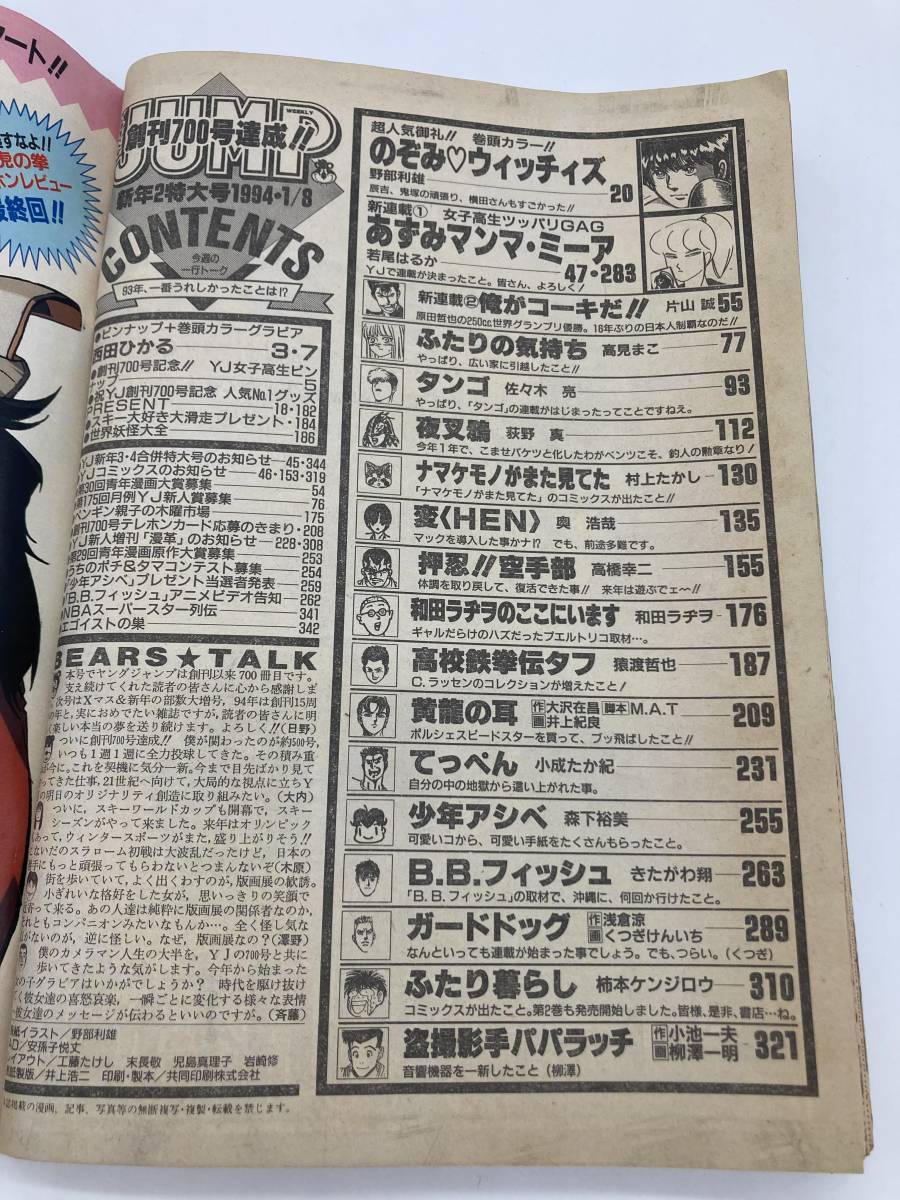 アート!!
すなよ!!
虎の拳
ホンレビュー
最終回!!
WEEKLY
JUMP
創刊700号達成!!
新年2特大号1994・1/8
CONTENTS
今週の
一行トーク
93年、一番うれしかったことは!?
●ピンナップ+巻頭カラーグラビア
西田ひかる 3・7
●創刊700号記念!! YJ女子高生ピン
ナップ 5
●祝YJ創刊700号記念 人気No.1グッズ
PRESENT 18・182
●スキー大好き大滑走プレゼント・184
●世界妖怪大全 186
YJ新年3・4合併特大号のお知らせ―45・344
YJコミックスのお知らせ―46・153・319
第30回青年漫画大賞募集 54
第175回月例YJ新人賞募集 76
ペンギン親子の木曜市場 175
創刊700号テレホンカード応募のきまり・208
YJ新人増刊「漫革」のお知らせ―228・308
第29回青年漫画原作大賞募集 253
うちのポチ&タマコンテスト募集 254
「少年アシベ」プレゼント当選者発表 259
「B.B.フィッシュ」アニメビデオ告知 262
NBAスーパースター列伝 341
エゴイストの巣 342
BEARS★TALK
本号でヤングジャンプは創刊以来700冊目です。
支え続けてくれた読者の皆さんに心から感謝しま
次号はXマス&新年の部数大増号、94年は創刊15周
の年と、実におめでたい雑誌ですが、読者の皆さんに明
く楽しい本当の夢を送り続けます。よろしく!!(日野)
ついに創刊700号達成!! 僕が関わったのが約500号、
いつも1週1週に全力投球してきた。その積み重
が今に。これを契機に気分一新。今まで目先ばかり見て
ってきた仕事、21世紀へ向けて、大局的な視点に立ちY
の明日のオリジナリティ創造に取り組みたい。(大内)
ついに、スキーワールドカップも開幕で、スキー
シーズンがやって来ました。来年はオリンピック
あって、ウィンタースポーツがまた、盛り上がりそう!!
ないだのスラローム初戦は大波乱だったけど、日本の
手にもっと頑張ってもらわないとつまんないぞ(木原)
街を歩いていて、よく出くわすのが、版画展の歓誘。
小ぎれいな格好をした女が、思いっきりの笑顔で
寄って来る。あの人達は純粋に版画展の関係者なのか、
れともコンパニオンみたいなもんか…。全く怪し気な
がないのが、逆に怪しい。なぜ、版画展なの?(澤野)
僕のカメラマン人生の大半を、YJの700号と共に
歩いてきたような気がします。今年から始まった
の子グラビアはいかがでしょうか? 時代を駆け抜け
く彼女達の喜怒哀楽、一瞬ごとに変化する様々な表情
彼女達のメッセージが伝わるといいのですが。(斉藤)
紙イラスト/野部利雄
D/安孫子悦丈
レイアウト/工藤たけし 末長敬 児島真理子 岩崎修
紙製版/井上浩二 印刷・製本/共同印刷株式会社
誌掲載の漫画、記事、写真等の無断複写・複製・転載を禁じます。
超人気御礼!! 巻頭カラー!!
のぞみ♡ウィッチィズ
野部利雄 20
辰吉、鬼塚の頑張り、横田さんもすごかった!!
新連載① 女子高生ツッパリGAG
あずみマンマ・ミーア
若尾はるか 47・283
YJで連載が決まったこと。皆さん、よろしく!
新連載②俺がコーキだ!! 片山 誠 55
原田哲也の250cc世界グランプリ優勝。16年ぶりの日本人制覇なのだ!!
ふたりの気持ち 高見まこ 77
やっぱり、広い家に引越したこと!!
タンゴ 佐々木 亮 93
やっぱり、「タンゴ」の連載がはじまったってことですねえ。
夜叉鴉 荻野 真 112
今年1年で、こませバケツと化したわがベンツこそ、釣人の勲章なり!
ナマケモノがまた見てた 村上たかし 130
「ナマケモノがまた見てた」のコミックスが出たこと!!
変〈HEN〉 奥 浩哉 135
マックを導入した事かナ!? でも、前途多難です。
押忍!!空手部 高橋幸二 155
体調を取り戻して、復活できた事!! 来年は遊ぶでェ〜!!
和田ラヂヲのここにいます 和田ラヂヲ 176
ギャルだらけのハズだったプエルトリコ取材…。
高校鉄拳伝タフ 猿渡哲也 187
C.ラッセンのコレクションが増えたこと!
黄龍の耳 作大沢在昌 脚本M.A.T 画井上紀良 209
ポルシェスピードスターを買って、ブッ飛ばしたこと!!
てっぺん 小成たか紀 231
自分の中の地獄から這い上がれた事。
少年アシベ 森下裕美 255
可愛いコから、可愛い手紙をたくさんもらったこと。
B.B.フィッシュ きたがわ翔 263
「B.B.フィッシュ」の取材で、沖縄に、何回か行けたこと。
ガードドッグ 作浅倉涼 画くつぎけんいち 289
なんといっても連載が始まった事でしょう。でも、つらい。(くつぎ)
ふたり暮らし 柿本ケンジロウ 310
コミックスが出たこと。第2巻も発売開始しました。皆様、是非、書店…ね。
盗撮影手パパラッチ 作小池一夫 画柳澤一明 321
音響機器を一新したこと(柳澤)